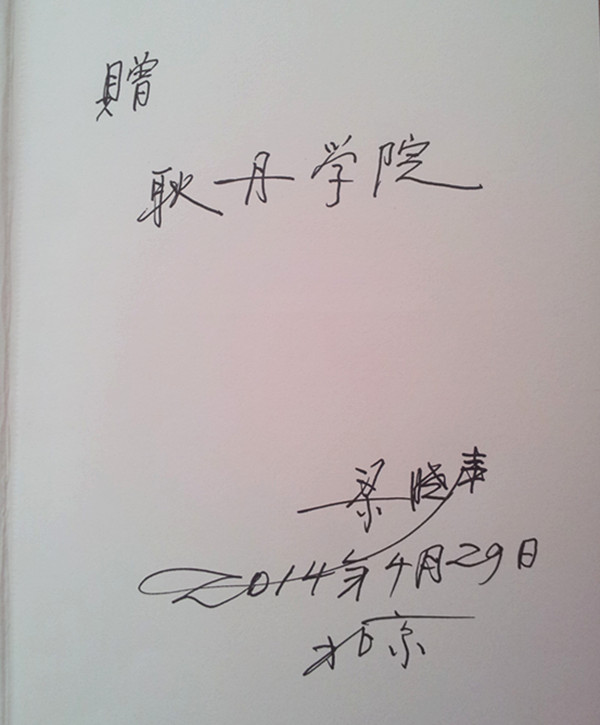 贈
耿丹学院
梁晓声
2014年4月29日
北京